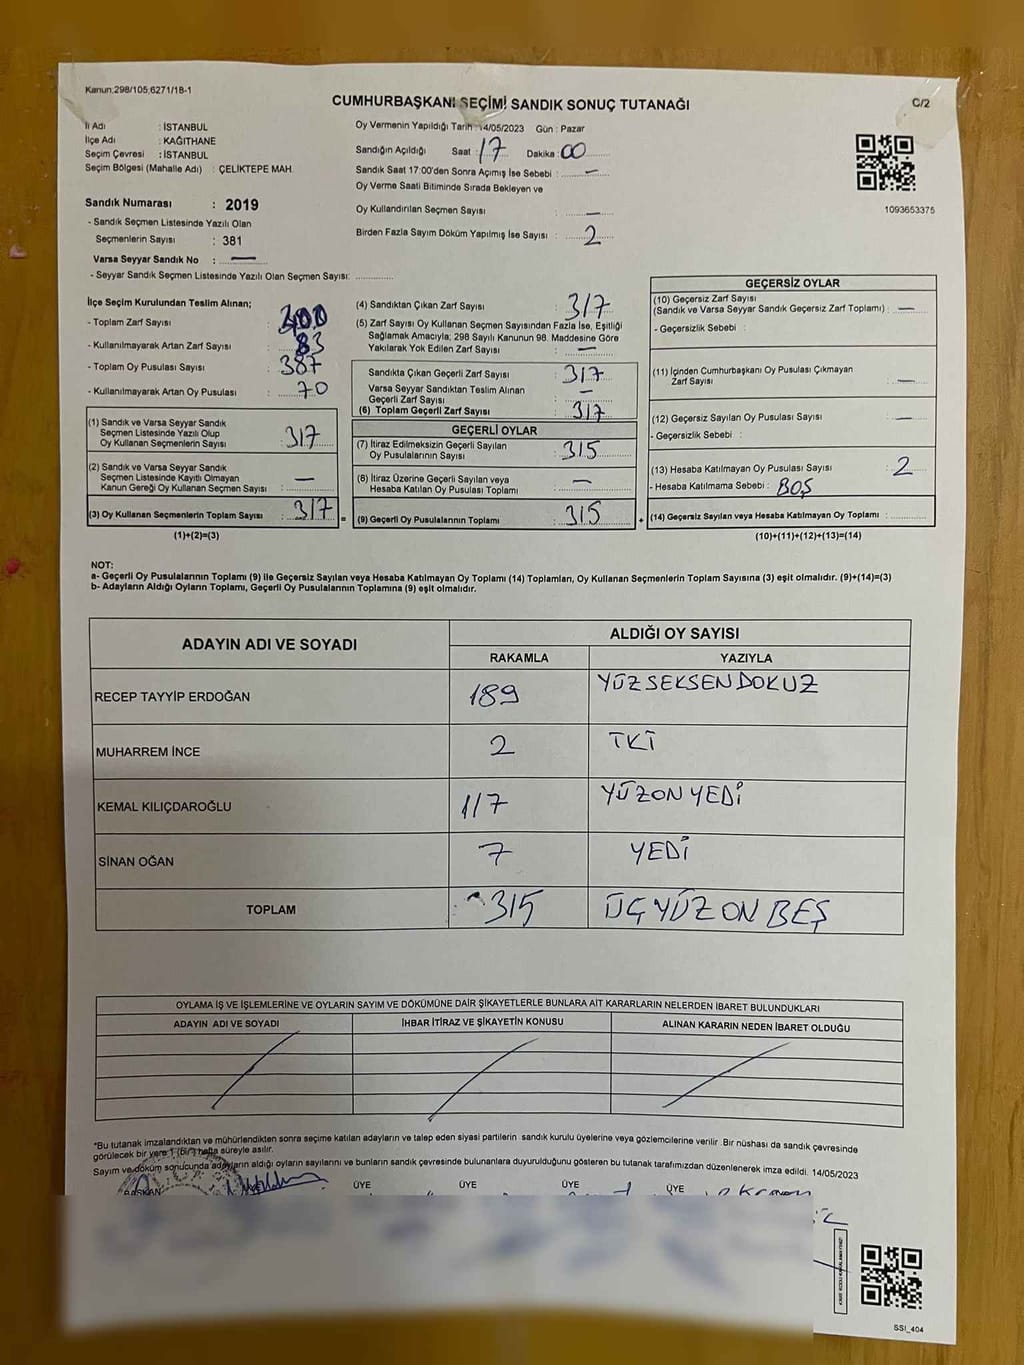 Kanun;298/105;6271/18-1
CUMHURBAŞKANI SEÇİMİ SANDIK SONUÇ TUTANAĞI
C/2
İl Adı : İSTANBUL
İlçe Adı : KAĞITHANE
Seçim Çevresi : İSTANBUL
Seçim Bölgesi (Mahalle Adı) : ÇELİKTEPE MAH.
Oy Vermenin Yapıldığı Tarih : 14/05/2023 Gün : Pazar
Sandığın Açıldığı Saat : 17 Dakika : 00
Sandık Saat 17:00'den Sonra Açımış İse Sebebi : —
Oy Verme Saati Bitiminde Sırada Bekleyen ve
Oy Kullandırılan Seçmen Sayısı : —
Birden Fazla Sayım Döküm Yapılmış İse Sayısı : 2
1093653375
Sandık Numarası : 2019
- Sandık Seçmen Listesinde Yazılı Olan
Seçmenlerin Sayısı : 381
Varsa Seyyar Sandık No : —
- Seyyar Sandık Seçmen Listesinde Yazılı Olan Seçmen Sayısı:
İlçe Seçim Kurulundan Teslim Alınan;
- Toplam Zarf Sayısı : 400
- Kullanılmayarak Artan Zarf Sayısı : 83
- Toplam Oy Pusulası Sayısı : 387
- Kullanılmayarak Artan Oy Pusulası : 70
(1) Sandık ve Varsa Seyyar Sandık
Seçmen Listesinde Yazılı Olup
Oy Kullanan Seçmenlerin Sayısı : 317
(2) Sandık ve Varsa Seyyar Sandık
Seçmen Listesinde Kayıtlı Olmayan
Kanun Gereği Oy Kullanan Seçmen Sayısı : —
(3) Oy Kullanan Seçmenlerin Toplam Sayısı : 317
(1)+(2)=(3)
(4) Sandıktan Çıkan Zarf Sayısı : 317
(5) Zarf Sayısı Oy Kullanan Seçmen Sayısından Fazla İse, Eşitliği
Sağlamak Amacıyla; 298 Sayılı Kanunun 98. Maddesine Göre
Yakılarak Yok Edilen Zarf Sayısı : —
Sandıkta Çıkan Geçerli Zarf Sayısı : 317
Varsa Seyyar Sandıktan Teslim Alınan
Geçerli Zarf Sayısı : —
(6) Toplam Geçerli Zarf Sayısı : 317
GEÇERLİ OYLAR
(7) İtiraz Edilmeksizin Geçerli Sayılan
Oy Pusulalarının Sayısı : 315
(8) İtiraz Üzerine Geçerli Sayılan veya
Hesaba Katılan Oy Pusulası Toplamı : —
= (9) Geçerli Oy Pusulalarının Toplamı : 315
GEÇERSİZ OYLAR
(10) Geçersiz Zarf Sayısı
(Sandık ve Varsa Seyyar Sandık Geçersiz Zarf Toplamı) : —
- Geçersizlik Sebebi :
(11) İçinden Cumhurbaşkanı Oy Pusulası Çıkmayan
Zarf Sayısı : —
(12) Geçersiz Sayılan Oy Pusulası Sayısı : —
- Geçersizlik Sebebi :
(13) Hesaba Katılmayan Oy Pusulası Sayısı : 2
- Hesaba Katılmama Sebebi : BOŞ
+ (14) Geçersiz Sayılan veya Hesaba Katılmayan Oy Toplamı :
(10)+(11)+(12)+(13)=(14)
NOT:
a- Geçerli Oy Pusulalarının Toplamı (9) ile Geçersiz Sayılan veya Hesaba Katılmayan Oy Toplamı (14) Toplamları, Oy Kullanan Seçmenlerin Toplam Sayısına (3) eşit olmalıdır. (9)+(14)=(3)
b- Adayların Aldığı Oyların Toplamı, Geçerli Oy Pusulalarının Toplamına (9) eşit olmalıdır.
ADAYIN ADI VE SOYADI ALDIĞI OY SAYISI
RAKAMLA YAZIYLA
RECEP TAYYİP ERDOĞAN 189 YÜZSEKSENDOKUZ
MUHARREM İNCE 2 İKİ
KEMAL KILIÇDAROĞLU 117 YÜZONYEDİ
SİNAN OĞAN 7 YEDİ
TOPLAM 315 ÜÇYÜZONBEŞ
OYLAMA İŞ VE İŞLEMLERİNE VE OYLARIN SAYIM VE DÖKÜMÜNE DAİR ŞİKAYETLERLE BUNLARA AİT KARARLARIN NELERDEN İBARET BULUNDUKLARI
ADAYIN ADI VE SOYADI İHBAR İTİRAZ VE ŞİKAYETİN KONUSU ALINAN KARARIN NEDEN İBARET OLDUĞU
*Bu tutanak imzalandıktan ve mühürlendikten sonra seçime katılan adayların ve talep eden siyasi partilerin sandık kurulu üyelerine veya gözlemcilerine verilir. Bir nüshası da sandık çevresinde
görülecek bir yere 1 (bir) hafta süreyle asılır.
Sayım ve döküm sonucunda adayların aldığı oyların sayılarını ve bunların sandık çevresinde bulunanlara duyurulduğunu gösteren bu tutanak tarafımızdan düzenlenerek imza edildi. 14/05/2023
BAŞKAN ÜYE ÜYE ÜYE ÜYE ÜYE
SSI_404